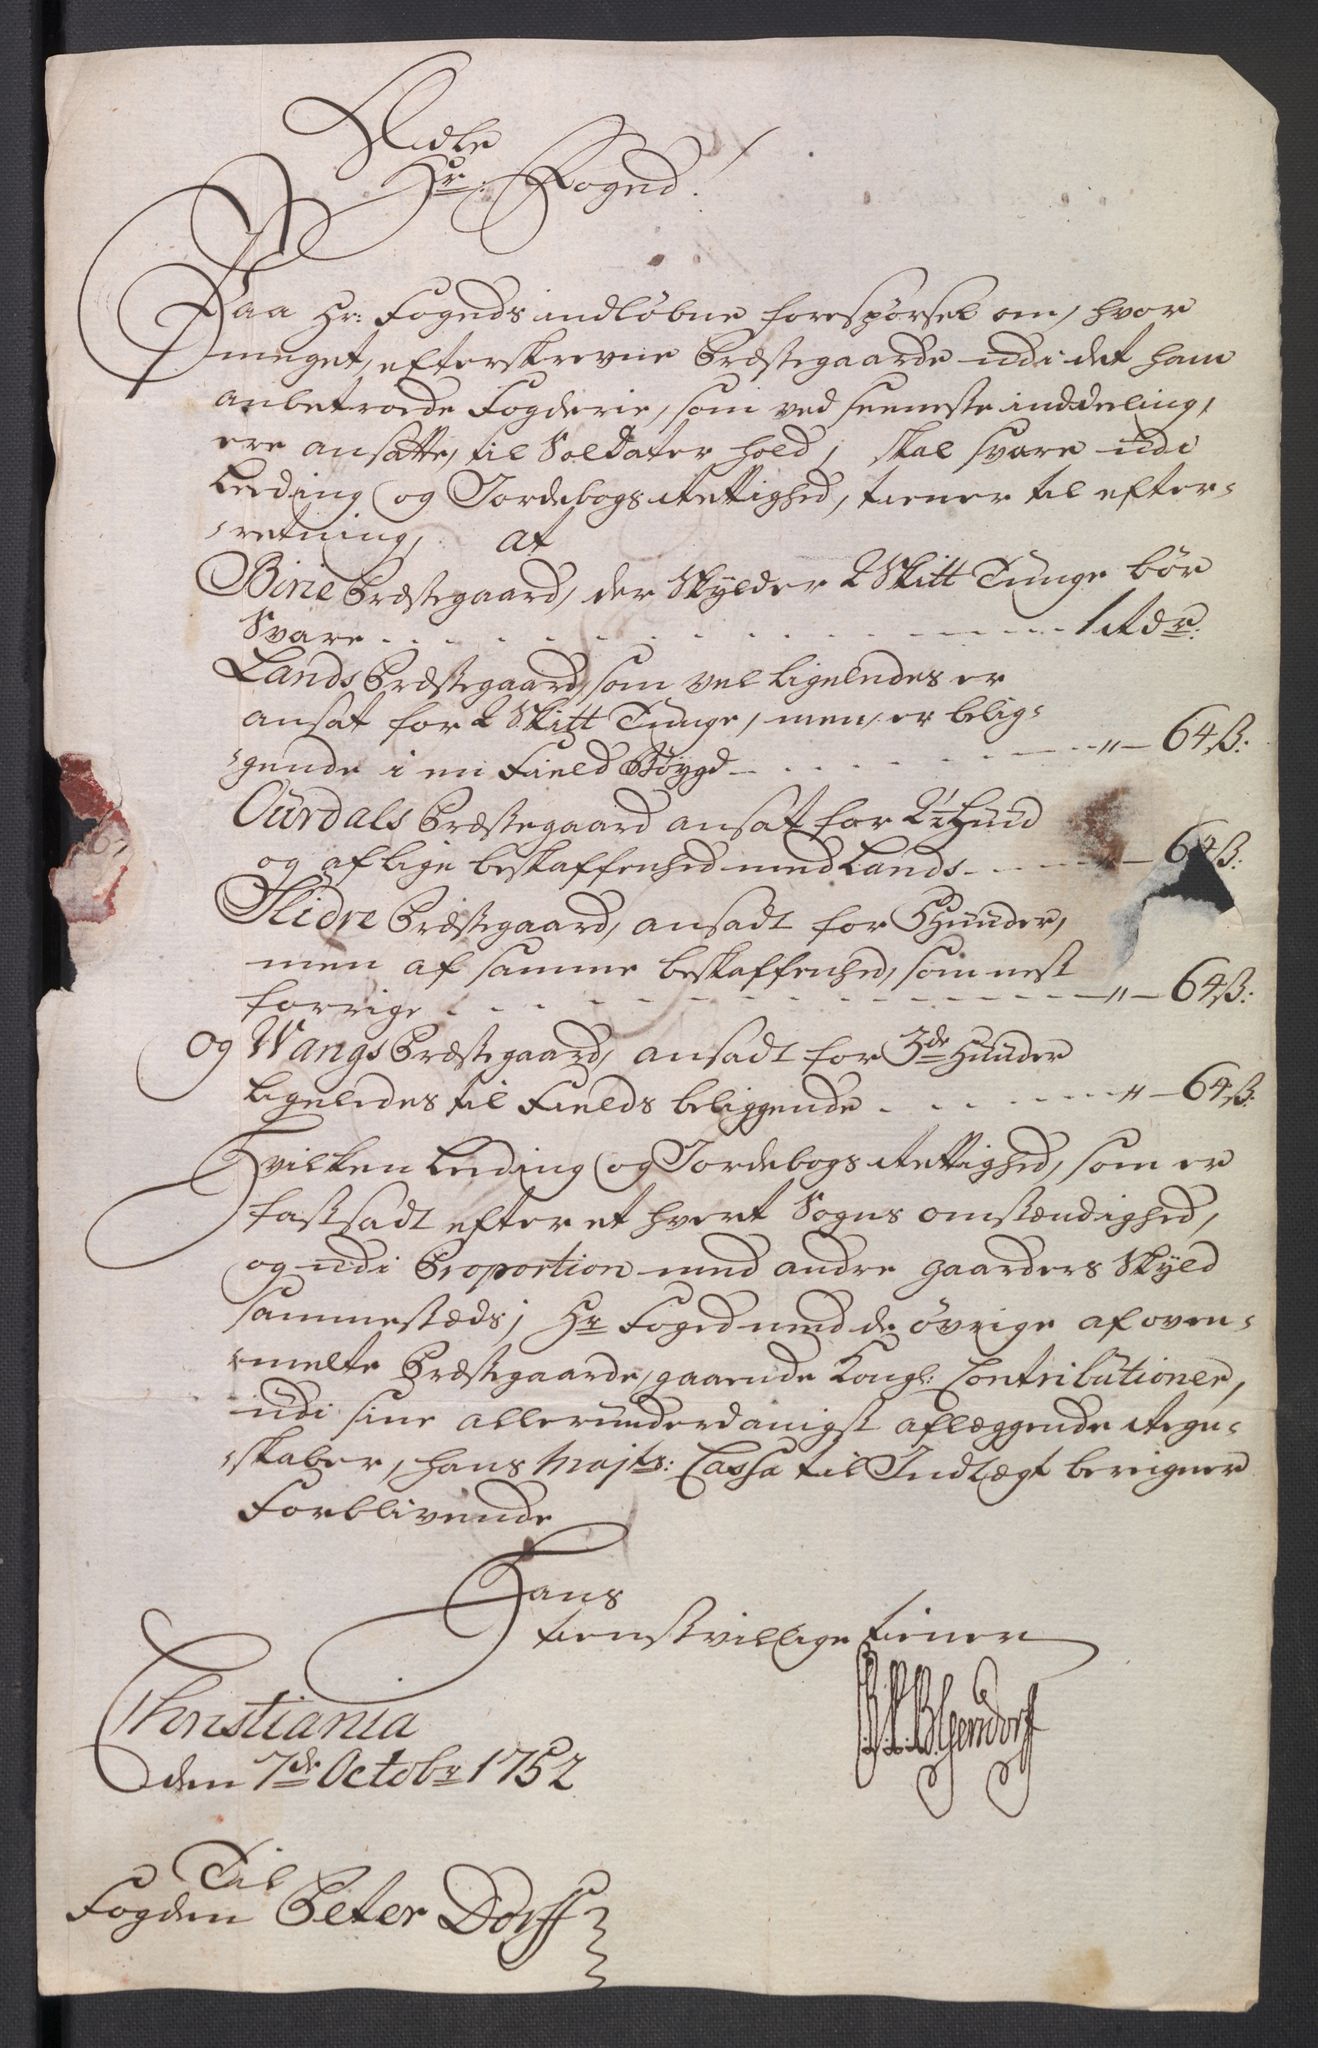 Ædle
Hr: Foged!
Paa Hr: Fogeds indløbne forespørsel om, hvor
meget, efterskrevne Præstegaarde udi det ham
anbetroede Fogderie, som ved seeneste inddeeling,
ere ansatte, til Soldater hold, skal svare udi
Leeding og Jordebogs Rettighed, tiener til efter-
-retning, at
Birie Præstegaard, der Skylder 2 Skitt Tunge bør
Svare 1 Rdr:
Lands Præstegaard, som vel ligeledes er
ansat for 2 Skitt Tunge, men, er belig-
-gende i en Field Bøygd " 64 ß:
Ourdals Præstegaard ansat for 2½ Huud
og af lige beskaffenhed med Lands " 64 ß:
Slidre Præstegaard, ansadt for 5 Huuder,
men af samme beskaffenhed, som nest
forrige " 64 ß:
Og Wangs Præstegaard, ansadt for 3de Huuder
ligeledes til Fields beliggende " 64 ß:
Hvilken Leeding og Jordebogs Rettighed, som er
fastsadt efter et hvert Sogns omstændighed,
og udi Proportion med andre gaarders Skyld
sammestæds; Hr Foged med de øvrige af oven-
-melte Præstegaarde, gaaende Kongl: Contributioner,
udi sine allerunderdanigst aflæggende Regn-
-skaber, hans Majts: Cassa til Indtægt bereigner
Forblivende
Hans
tienstvillige tiener
Christiania
den 7de Octobr 1752
Til
Fogden Peter Dorff